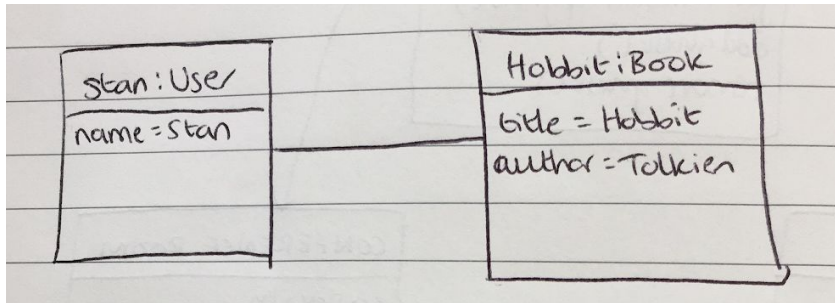 stan:User
name=Stan
Hobbit:Book
title = Hobbit
author=Tolkien